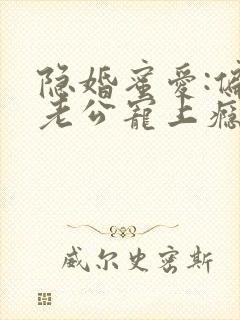 隐婚蜜爱:偏
老公宠上瘾
威尔史密斯